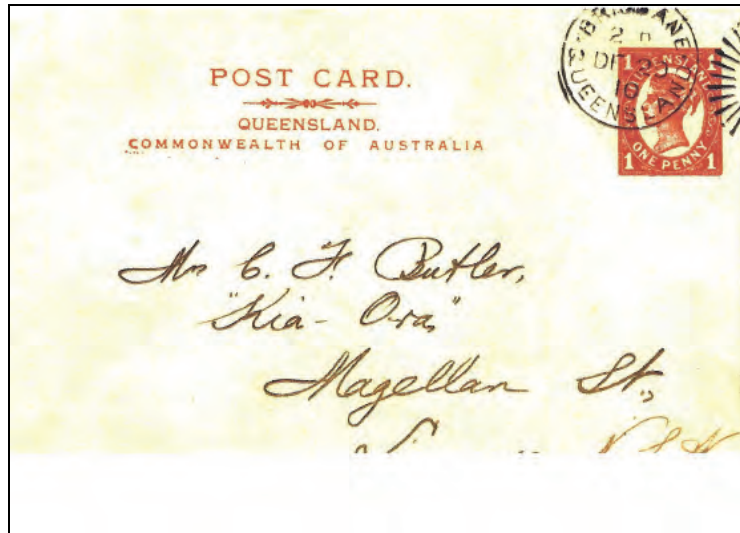 POST CARD.
QUEENSLAND.
COMMONWEALTH OF AUSTRALIA
BRISBANE
10
QUEENSLAND
QUEENSLAND
1 1
1 ONE PENNY 1
Mrs C. F. Butler,
"Kia-Ora,"
Magellan St.,